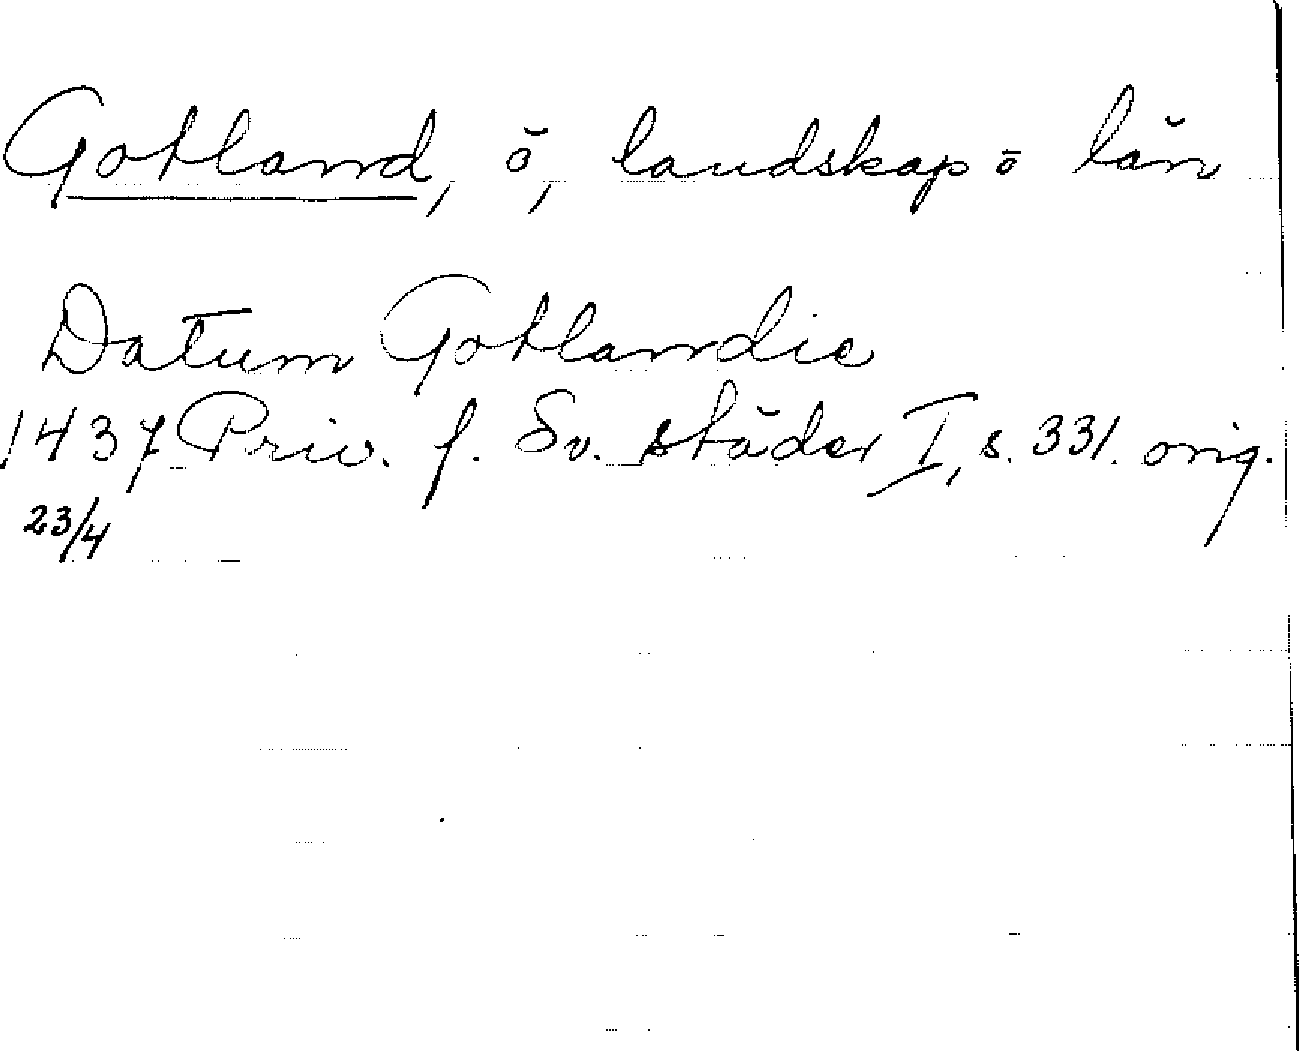 Gotland, ö, landskap o län
Datum Gotlandie
1437 Priv. f. Sv. städer I, s. 331. orig.
23/4